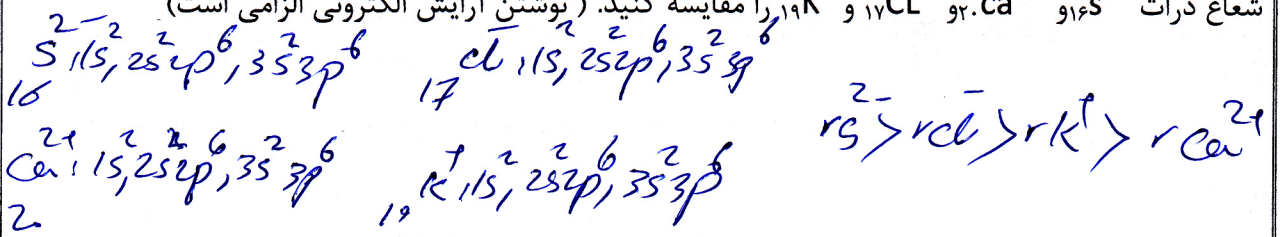 شعاع ذرات ₁₆S و ₂₀ca و ₁₇CL و ₁₉K را مقایسه کنید. ( نوشتن آرایش الکترونی الزامی است)
₁₆S²⁻: 1s², 2s²2p⁶, 3s²3p⁶
₁₇cl⁻: 1s², 2s²2p⁶, 3s²3p⁶
rs²⁻ > rcl⁻ > rk⁺ > rca²⁺
₂₀Ca²⁺: 1s², 2s²2p⁶, 3s²3p⁶
₁₉k⁺: 1s², 2s²2p⁶, 3s²3p⁶